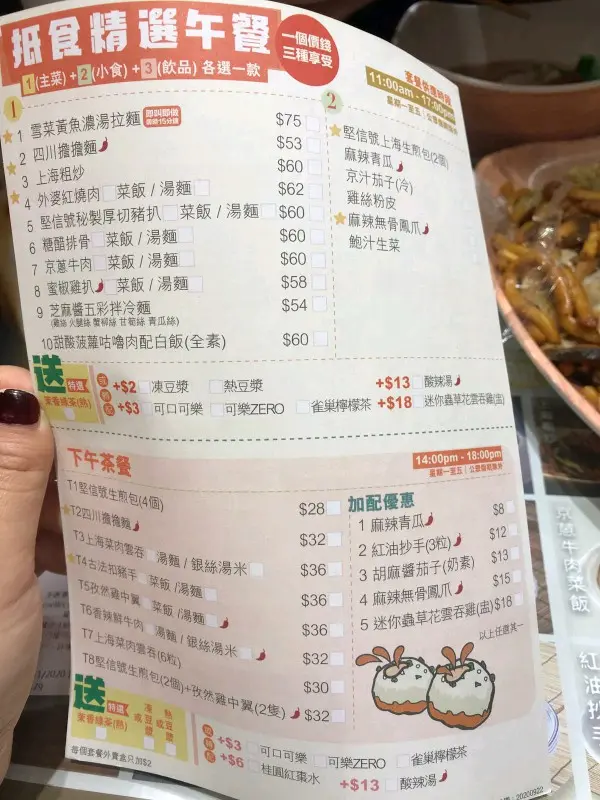 抵食精選午餐
一個價錢
三種享受
1(主菜)+2(小食)+3(飲品) 各選一款
11:00am - 17:00pm
星期一至五|公眾假期除外
1
1 雪菜黃魚濃湯拉麵 即叫即做 需時15分鐘 $75
2 四川擔擔麵 $53
3 上海粗炒 $60
4 外婆紅燒肉 菜飯 / 湯麵 $62
5 堅信號秘製厚切豬扒 菜飯 / 湯麵 $60
6 糖醋排骨 菜飯 / 湯麵 $60
7 京蔥牛肉 菜飯 / 湯麵 $60
8 蜜椒雞扒 菜飯 / 湯麵 $58
9 芝麻醬五彩拌冷麵 $54
(雞絲 火腿絲 蟹柳絲 甘筍絲 青瓜絲)
10 甜酸菠蘿咕嚕肉配白飯(全素) $60
2
堅信號上海生煎包(2個)
麻辣青瓜
京汁茄子(冷)
雞絲粉皮
麻辣無骨鳳爪
鮑汁生菜
送 特選
茉香綠茶(熱)
+$2 凍豆漿 熱豆漿 +$13 酸辣湯
+$3 可口可樂 可樂ZERO 雀巢檸檬茶 +$18 迷你蟲草花雲吞雞(盅)
下午茶餐
14:00pm - 18:00pm
星期一至五|公眾假期除外
T1堅信號生煎包(4個) $28
T2四川擔擔麵 $32
T3上海菜肉雲吞 湯麵 / 銀絲湯米 $36
T4古法扣豬手 菜飯 /湯麵 $36
T5孜然雞中翼 菜飯 /湯麵 $36
T6香辣鮮牛肉 湯麵 / 銀絲湯米 $32
T7上海菜肉雲吞(6粒) $30
T8堅信號生煎包(2個)+孜然雞中翼(2隻) $32
加配優惠
1 麻辣青瓜 $8
2 紅油抄手(3粒) $12
3 胡麻醬茄子(奶素) $13
4 麻辣無骨鳳爪 $15
5 迷你蟲草花雲吞雞(盅) $18
以上任選其一
送 特選
茉香綠茶(熱)
凍 熱
或豆 或豆
漿 漿
+$3 可口可樂 可樂ZERO 雀巢檸檬茶
+$6 桂圓紅棗水 +$13 酸辣湯
每個套餐外賣盒只加$2
20200922
京蔥牛肉菜飯
紅油抄手